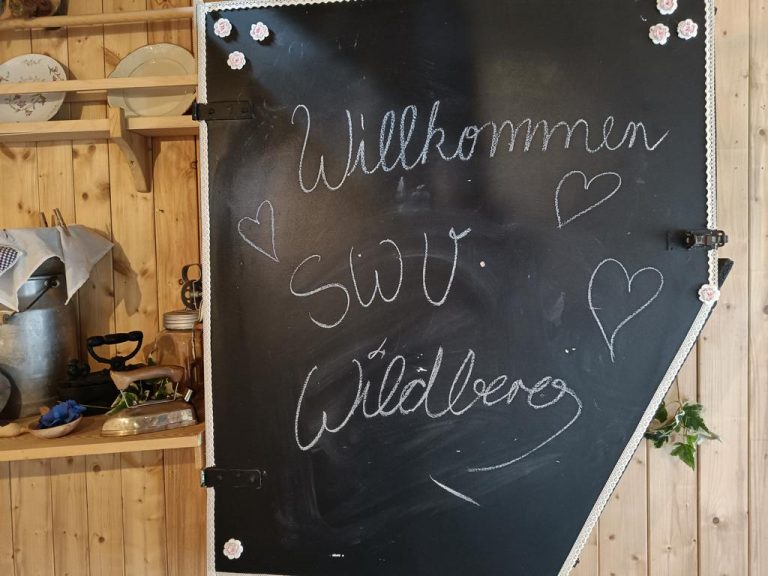 Willkommen
SWV
Wildberg